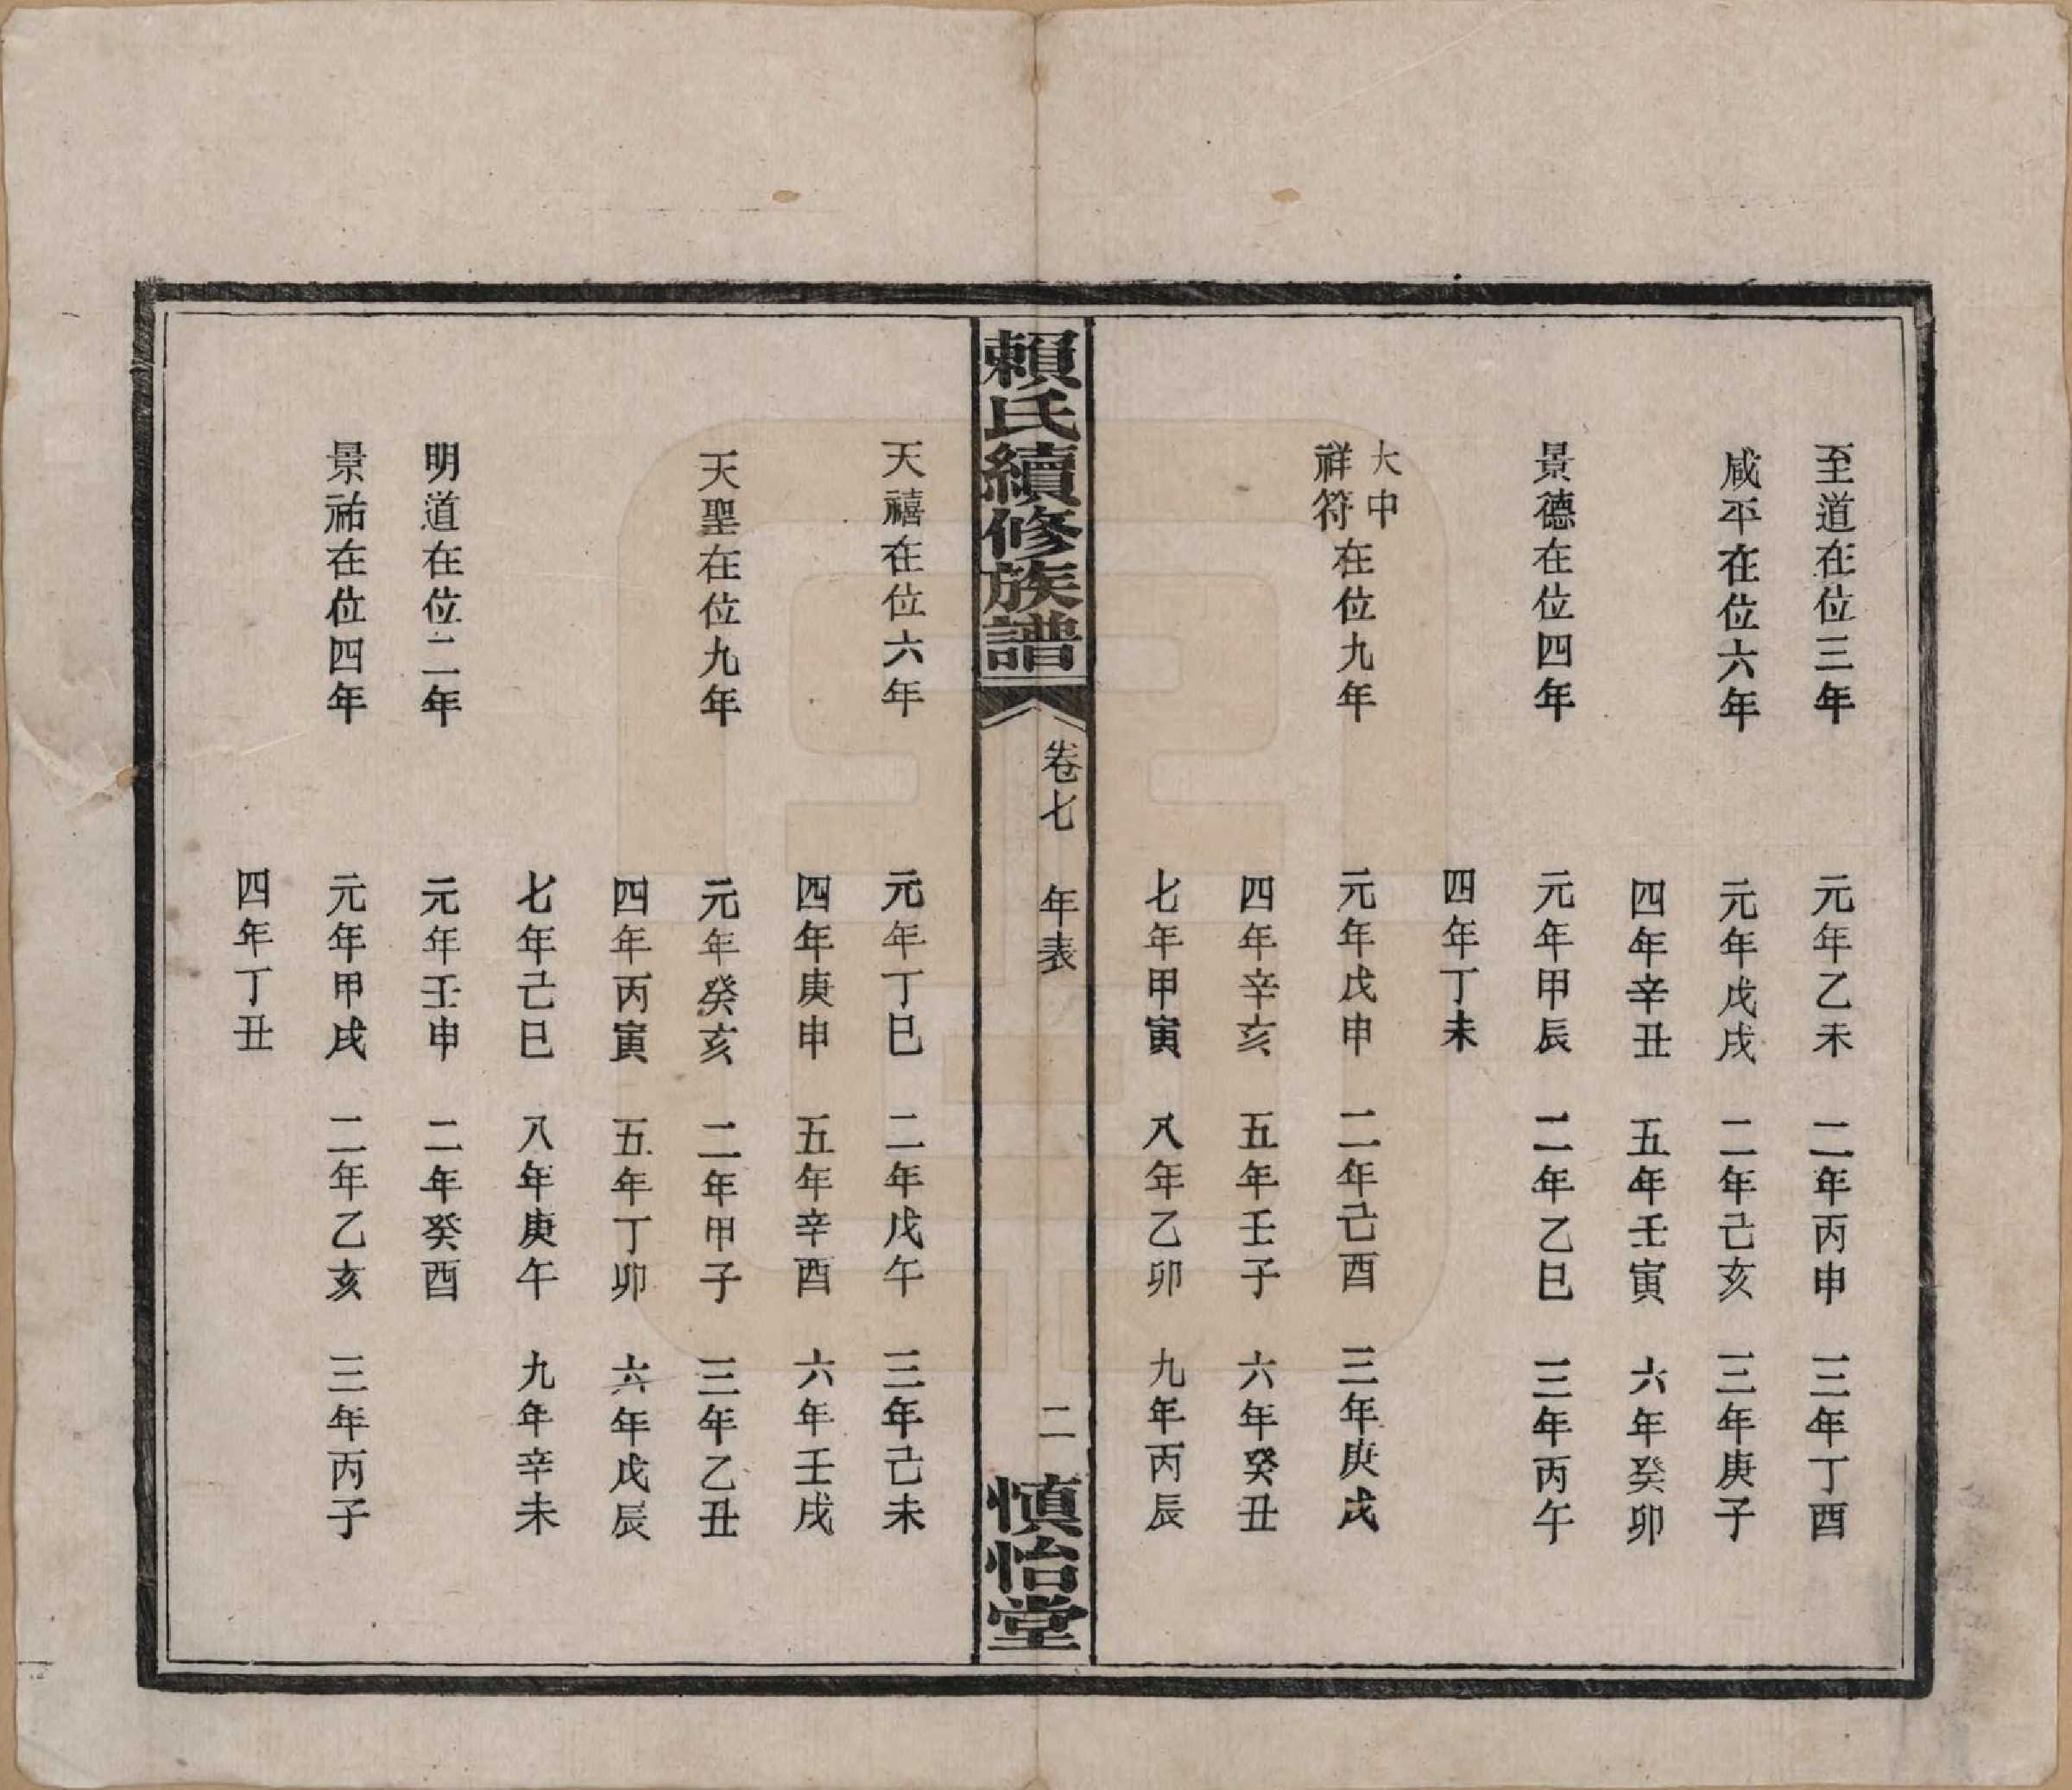 至道在位三年　元年乙未　二年丙申　三年丁酉
咸平在位六年　元年戊戌　二年己亥　三年庚子
四年辛丑　五年壬寅　六年癸卯
景德在位四年　元年甲辰　二年乙巳　三年丙午
四年丁未
大中祥符在位九年　元年戊申　二年己酉　三年庚戌
四年辛亥　五年壬子　六年癸丑
七年甲寅　八年乙卯　九年丙辰
賴氏續修族譜　卷七　年表　二　慎怡堂
天禧在位六年　元年丁巳　二年戊午　三年己未
四年庚申　五年辛酉　六年壬戌
天聖在位九年　元年癸亥　二年甲子　三年乙丑
四年丙寅　五年丁卯　六年戊辰
七年己巳　八年庚午　九年辛未
明道在位二年　元年壬申　二年癸酉
景祐在位四年　元年甲戌　二年乙亥　三年丙子
四年丁丑